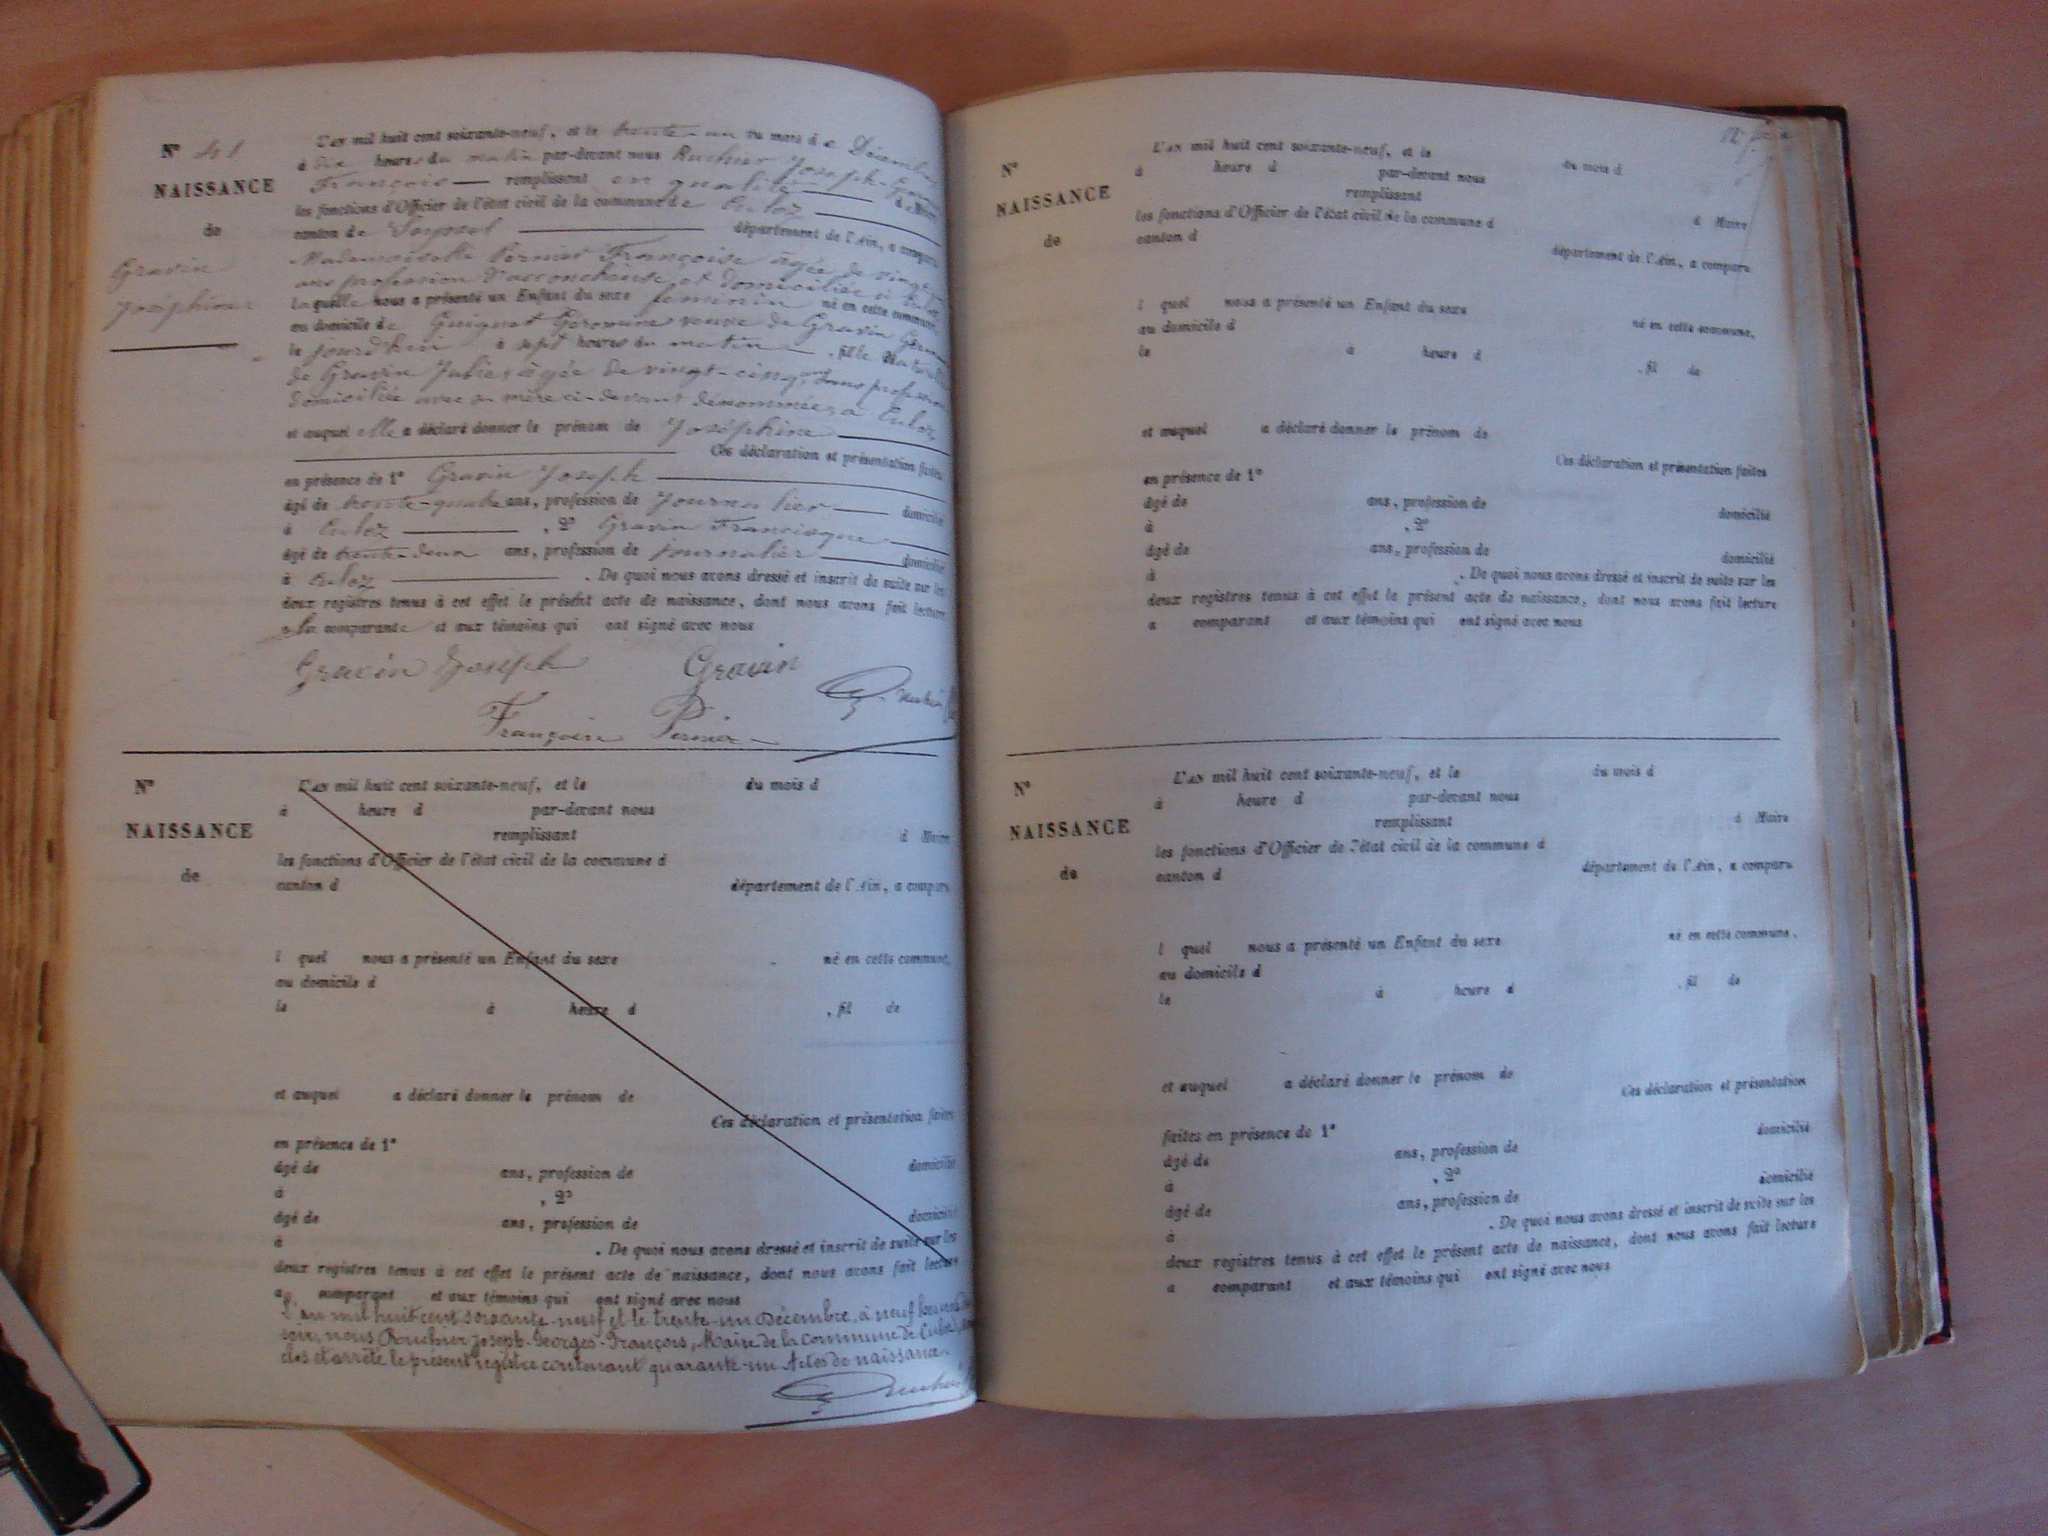 N° 41
NAISSANCE
de
Gravin
Joséphine
L'AN mil huit cent soixante-neuf, et le trente-un du mois de Décembre
à dix heures du matin par-devant nous Ruchier Joseph-Georges
François remplissant en qualité de Maire
les fonctions d'Officier de l'état civil de la commune de Culoz
canton de Seyssel département de l'Ain, a comparu
Mademoiselle Pernier Françoise âgée de vingt
ans profession d'accoucheuse et domiciliée à Culoz
laquelle nous a présenté un Enfant du sexe féminin né en cette commune,
au domicile de Guignet Germaine veuve de Gravin
le jourd'hui à sept heures du matin, fille naturelle
de Gravin Julie, âgée de vingt-cinq ans, sans profession
domiciliée avec sa mère ci-devant dénommée, à Culoz
et auquel elle a déclaré donner le prénom de Joséphine
Ces déclaration et présentation faites
en présence de 1° Gravin Joseph
âgé de trente-quatre ans, profession de journalier domicilié
à Culoz, 2° Gravin Francisque
âgé de trente-deux ans, profession de journalier domicilié
à Culoz. De quoi nous avons dressé et inscrit de suite sur les
deux registres tenus à cet effet le présent acte de naissance, dont nous avons fait lecture
à la comparante et aux témoins qui ont signé avec nous
Gravin Joseph Gravin
Françoise Pernier
N°
NAISSANCE
de
L'AN mil huit cent soixante-neuf, et le du mois d
à heure d par-devant nous
remplissant d Maire
les fonctions d'Officier de l'état civil de la commune d
canton d département de l'Ain, a comparu
l quel nous a présenté un Enfant du sexe né en cette commune,
au domicile d
le à heure d , fil de
et auquel a déclaré donner le prénom de
Ces déclaration et présentation faites
en présence de 1°
âgé de ans, profession de domicilié
à , 2°
âgé de ans, profession de domicilié
à . De quoi nous avons dressé et inscrit de suite sur les
deux registres tenus à cet effet le présent acte de naissance, dont nous avons fait lecture
a comparant et aux témoins qui ont signé avec nous
L'an mil huit cent soixante-neuf et le trente-un Décembre, à neuf heures du
soir, nous Ruchier Joseph-Georges-François, Maire de la commune de Culoz, avons
clos et arrêté le présent registre contenant quarante-un Actes de naissance.
N°
NAISSANCE
de
L'AN mil huit cent soixante-neuf, et le du mois d
à heure d par-devant nous
remplissant d Maire
les fonctions d'Officier de l'état civil de la commune d
canton d département de l'Ain, a comparu
l quel nous a présenté un Enfant du sexe né en cette commune,
au domicile d
le à heure d , fil de
et auquel a déclaré donner le prénom de
Ces déclaration et présentation faites
en présence de 1°
âgé de ans, profession de domicilié
à , 2°
âgé de ans, profession de domicilié
à . De quoi nous avons dressé et inscrit de suite sur les
deux registres tenus à cet effet le présent acte de naissance, dont nous avons fait lecture
a comparant et aux témoins qui ont signé avec nous
N°
NAISSANCE
de
L'AN mil huit cent soixante-neuf, et le du mois d
à heure d par-devant nous
remplissant d Maire
les fonctions d'Officier de l'état civil de la commune d
canton d département de l'Ain, a comparu
l quel nous a présenté un Enfant du sexe né en cette commune,
au domicile d
le à heure d , fil de
et auquel a déclaré donner le prénom de
Ces déclaration et présentation
faites en présence de 1° domicilié
âgé de ans, profession de
à , 2° domicilié
âgé de ans, profession de
à . De quoi nous avons dressé et inscrit de suite sur les
deux registres tenus à cet effet le présent acte de naissance, dont nous avons fait lecture
a comparant et aux témoins qui ont signé avec nous